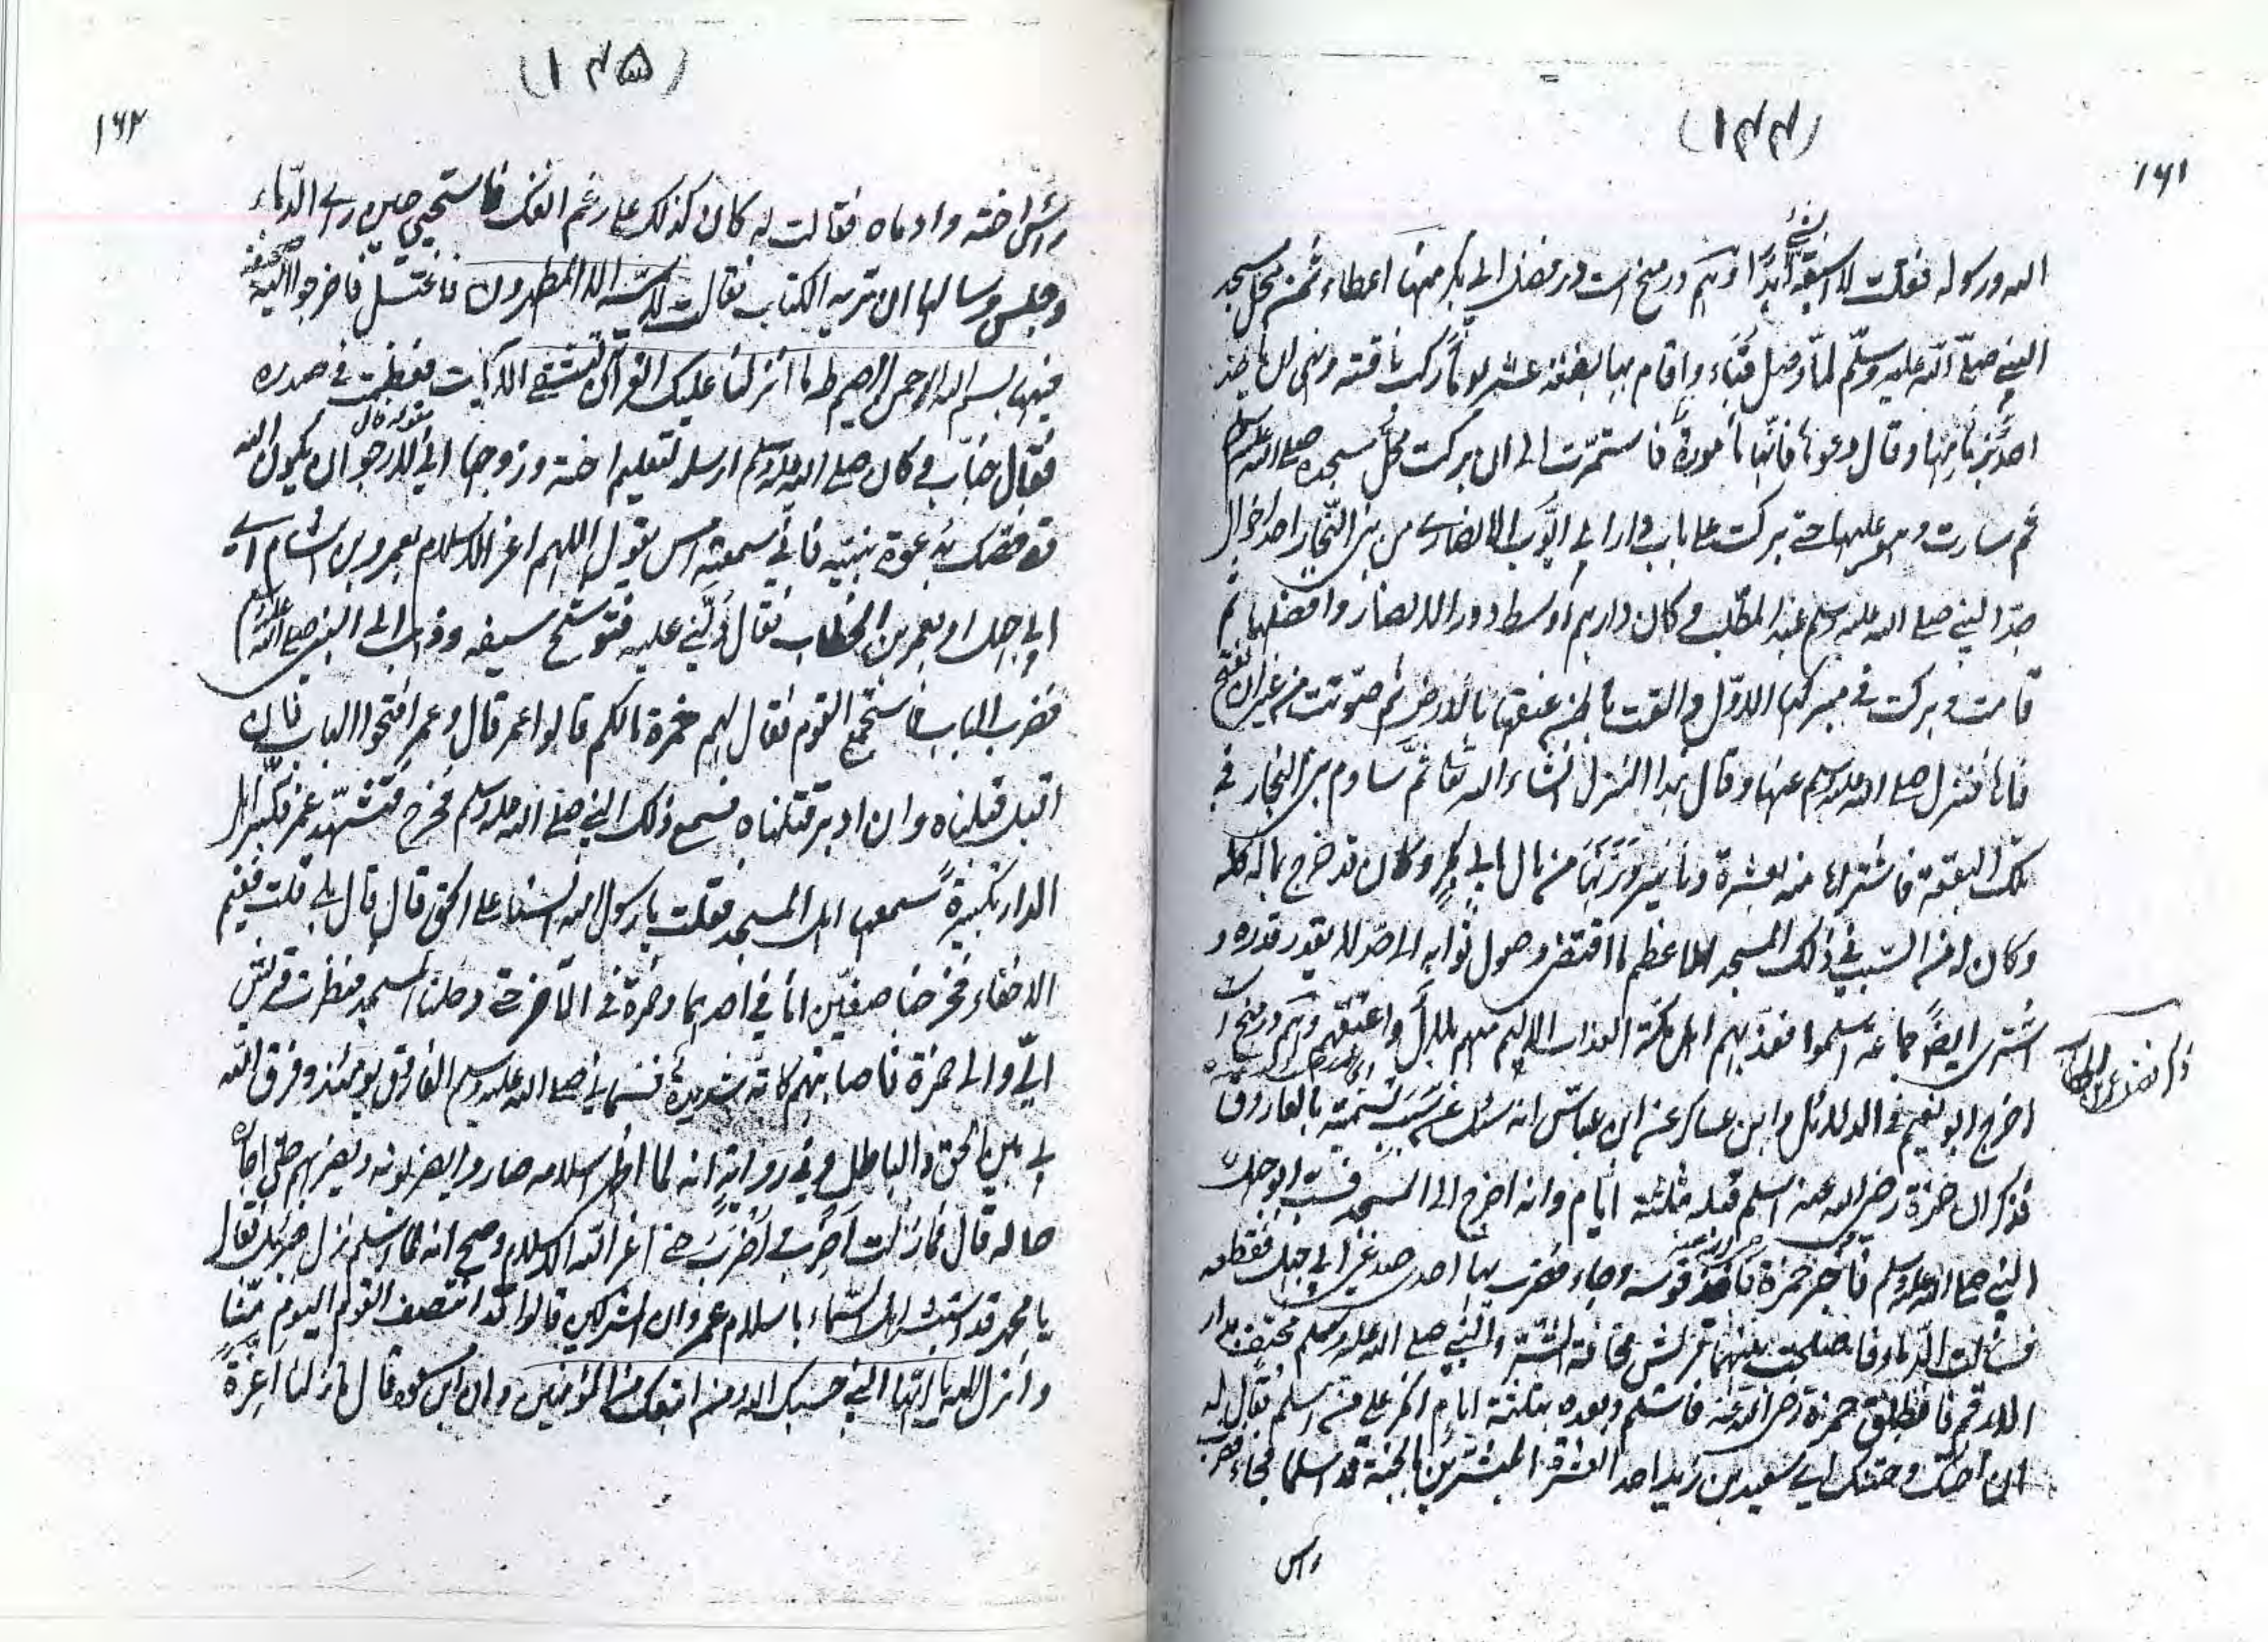 (۱۴۴)
۱۶۱
الله ورسوله فقلت لا اسبقه الى شئ ابدًا ودرمنح است در فضل ابى بكر منها اعطاء ثمن محل مسجد
النبى صلى الله عليه وسلم لما وصل قباء واقام بها بضعة عشر يوما ركب ناقته ونهى ان ياخذ
احد بزمامها وقال دعوها فانها مامورة فاستمرت الى ان بركت محل مسجده صلى الله عليه وسلم
ثم سارت وهو عليها حتى بركت على باب دار ابى ايوب الانصارى من بنى النجار اخوال
جد النبى صلى الله عليه وسلم عبد المطلب وكان دارهم اوسط دور الانصار وافضلها ثم
قامت وبركت فى مبركها الاول والقت باطن عنقها بالارض ثم صوتت من غير ان تفتح
فاها فنزل صلى الله عليه وسلم عنها وقال هذا المنزل انشاء الله تعا ثم ساوم بنى النجار فى
تلك البقعة فاشتراها منه بعشرة دنانير وزنها من مال ابى بكر وكان قد خرج بماله كله
وكان لمن السبب فى ذلك المسجد الاعظم ما اقتضى وصول ثوابه الى حد لا يقدر قدره و
اشترى ايضًا جماعة اسلموا فعذبهم اهل مكة العذاب الاليم منهم بلال واعتقهم ودرمنح است
ذكر فضل عمر بن الخطاب
اخرج ابو نعيم فى الدلائل وابن عساكر عن ابن عباس انه سئل عن سبب تسميته بالفاروق
فذكر ان حمزة رضى الله عنه اسلم قبله بثلثة ايام وانه اخرج الى المسجد فسب ابو جهل
النبى صلى الله عليه وسلم فاخبر حمزة فاخذ قوسه وجاء فضرب بها احد صدغى ابى جهل فقطعه
فسالت الدماء فاصلحت بينهما قريش مخافة الشر والنبى صلى الله عليه وسلم مختف بدار
الارقم فانطلق حمزة رضى الله عنه فاسلم وبعده بثلثة ايام انكر على من اسلم فقال له
ان اختك وختنك اى سعيد بن زيد احد العشرة المبشرين بالجنة قد اسلما فجاء فضرب
راس
(۱۴۵)
۱۶۲
راس اخته وادماه فقالت له كان ذلك على رغم انفك فاستحيى حين راى الدماء
وجلس وسالها ان تريه الكتاب فقالت لا يمسه الا المطهرون فاغتسل فاخرجوا اليه صحيفة
فيها بسم الله الرحمن الرحيم طه ما انزلنا عليك القرآن لتشقى الآيات فعظمت فى صدره
فقال خباب وكان صلى الله عليه وسلم ارسله لتعليم اخته وزوجها انى لارجو ان يكون الله
قد خصك بدعوة نبيه فانى سمعته امس يقول اللهم اعز الاسلام بعمرو بن هشام اى
ابى جهل او بعمر بن الخطاب فقال دلنى عليه فتوشح سيفه وذهب الى النبى صلى الله عليه وسلم
فضرب الباب فاستجمع القوم فقال لهم حمزة مالكم قالوا عمر قال وعمر افتحوا الباب فان
اقبل قبلناه وان ادبر قتلناه فسمع ذلك النبى صلى الله عليه وسلم فخرج فتشهد عمر فكبر اهل
الدار تكبيرة سمعها اهل المسجد فقلت يارسول الله السنا على الحق قال بلى قلت ففيم
الاخفاء فخرجنا صفين انا فى احدهما وحمزة فى الآخر حتى دخلنا المسجد فنظرت قريش
الى والى حمزة فاصابتهم كآبة شديدة فسمانى صلى الله عليه وسلم الفاروق يومئذ وفرق الله
بى بين الحق والباطل وفى رواية انه لما اظهر اسلامه صاروا يضربونه ويضربهم حتى اجاره
خاله قال فما زلت اضرب واضرب حتى اعز الله الاسلام وصح انه لما اسلم نزل جبرئيل فقال
يا محمد قد استبشر اهل السماء باسلام عمر وان المشركين قالوا قد انتصف القوم اليوم منا
وانزل الله يا ايها النبى حسبك الله ومن اتبعك من المؤمنين وان ابن مسعود قال ما زلنا اعزة